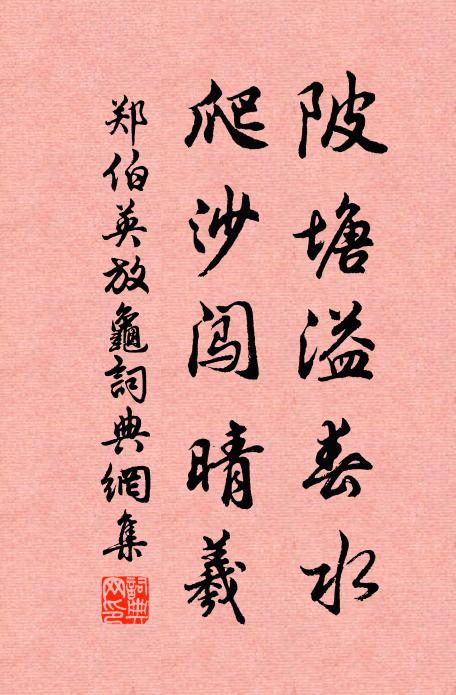 陂塘溢春水
爬沙闯晴羲
郑伯英放龜詞典網集
詞典網印